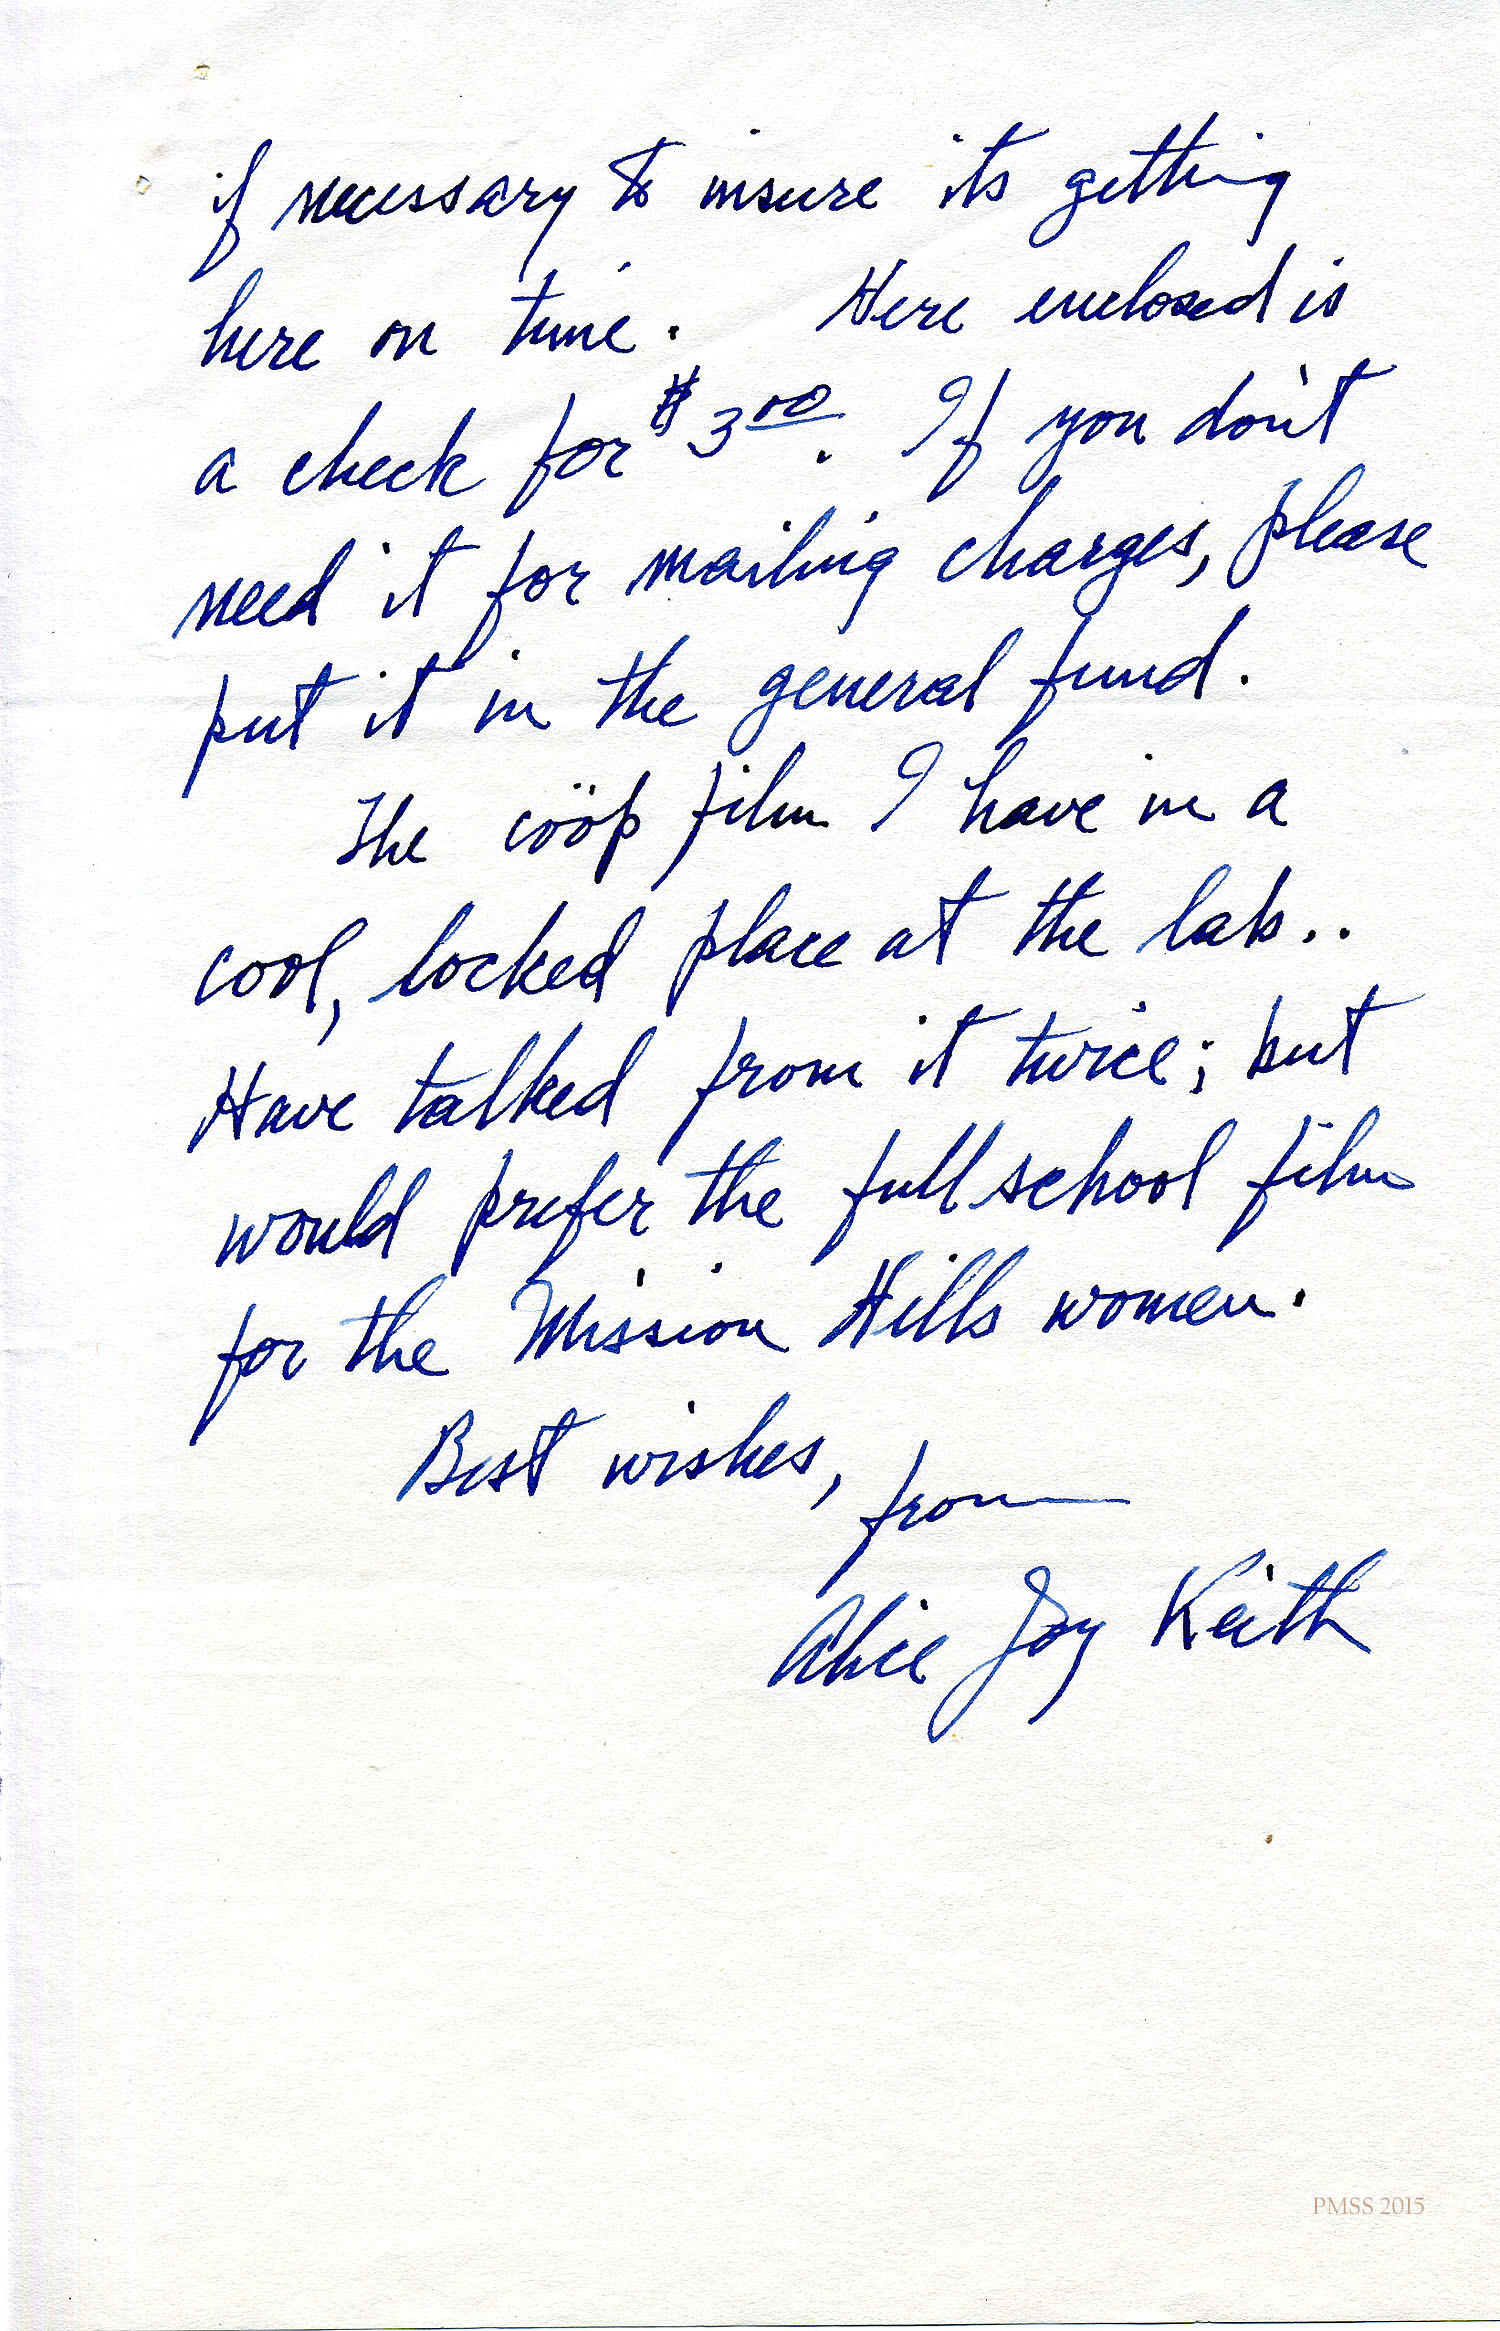 if necessary to insure its getting
here on time. Here enclosed is
a check for $3.00. If you don't
need it for mailing charges, please
put it in the general fund.
The coöp film I have in a
cool, locked place at the lab..
Have talked from it twice; but
would prefer the full school film
for the Mission Hills women.
Best wishes, from
Alice Joy Keith
PMSS 2015